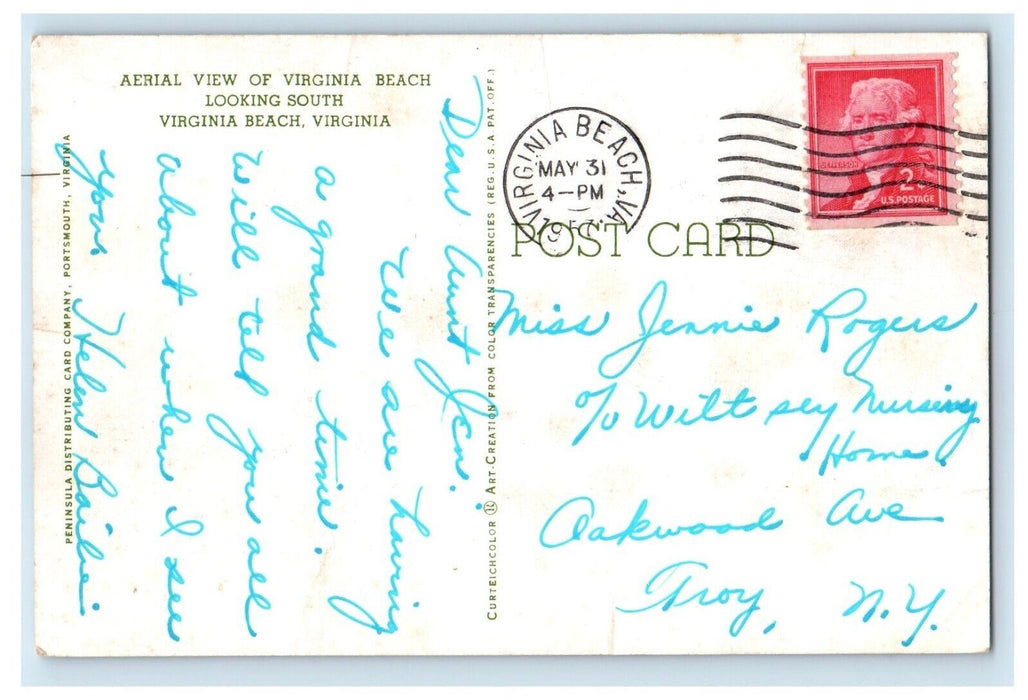 AERIAL VIEW OF VIRGINIA BEACH
LOOKING SOUTH
VIRGINIA BEACH, VIRGINIA
Dear Aunt Jen.
We are having
a grand time.
Will tell you all
about when I see
you. Helen Bailie.
PENINSULA DISTRIBUTING CARD COMPANY, PORTSMOUTH, VIRGINIA
CURTEICHCOLOR ® ART-CREATION FROM COLOR TRANSPARENCIES (REG. U.S.A. PAT. OFF.)
VIRGINIA BEACH, VA.
MAY 31
4-PM
JEFFERSON
2¢
U.S. POSTAGE
POST CARD
Miss Jennie Rogers
c/o Wiltsey Nursing
Home.
Oakwood Ave
Troy, N.Y.